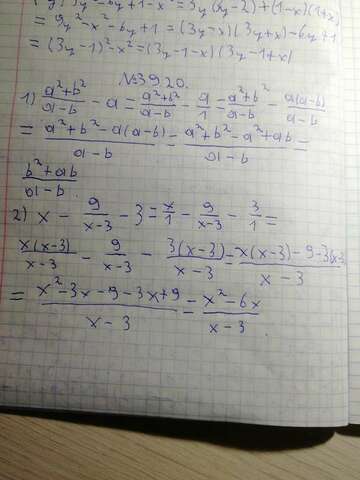 = 9y²-x²-6y+1 = (3y-x)(3y+x)-6y+1
= (3y-1)²-x² = (3y-1-x)(3y-1+x)
№3920.
1) (a²+b²)/(a-b) - a = (a²+b²)/(a-b) - a/1 = (a²+b²)/(a-b) - a(a-b)/(a-b)
= (a²+b²-a(a-b))/(a-b) = (a²+b²-a²+ab)/(a-b) =
(b²+ab)/(a-b)
2) x - 9/(x-3) - 3 = x/1 - 9/(x-3) - 3/1 =
x(x-3)/(x-3) - 9/(x-3) - 3(x-3)/(x-3) = (x(x-3)-9-3(x-3))/(x-3)
= (x²-3x-9-3x+9)/(x-3) = (x²-6x)/(x-3)